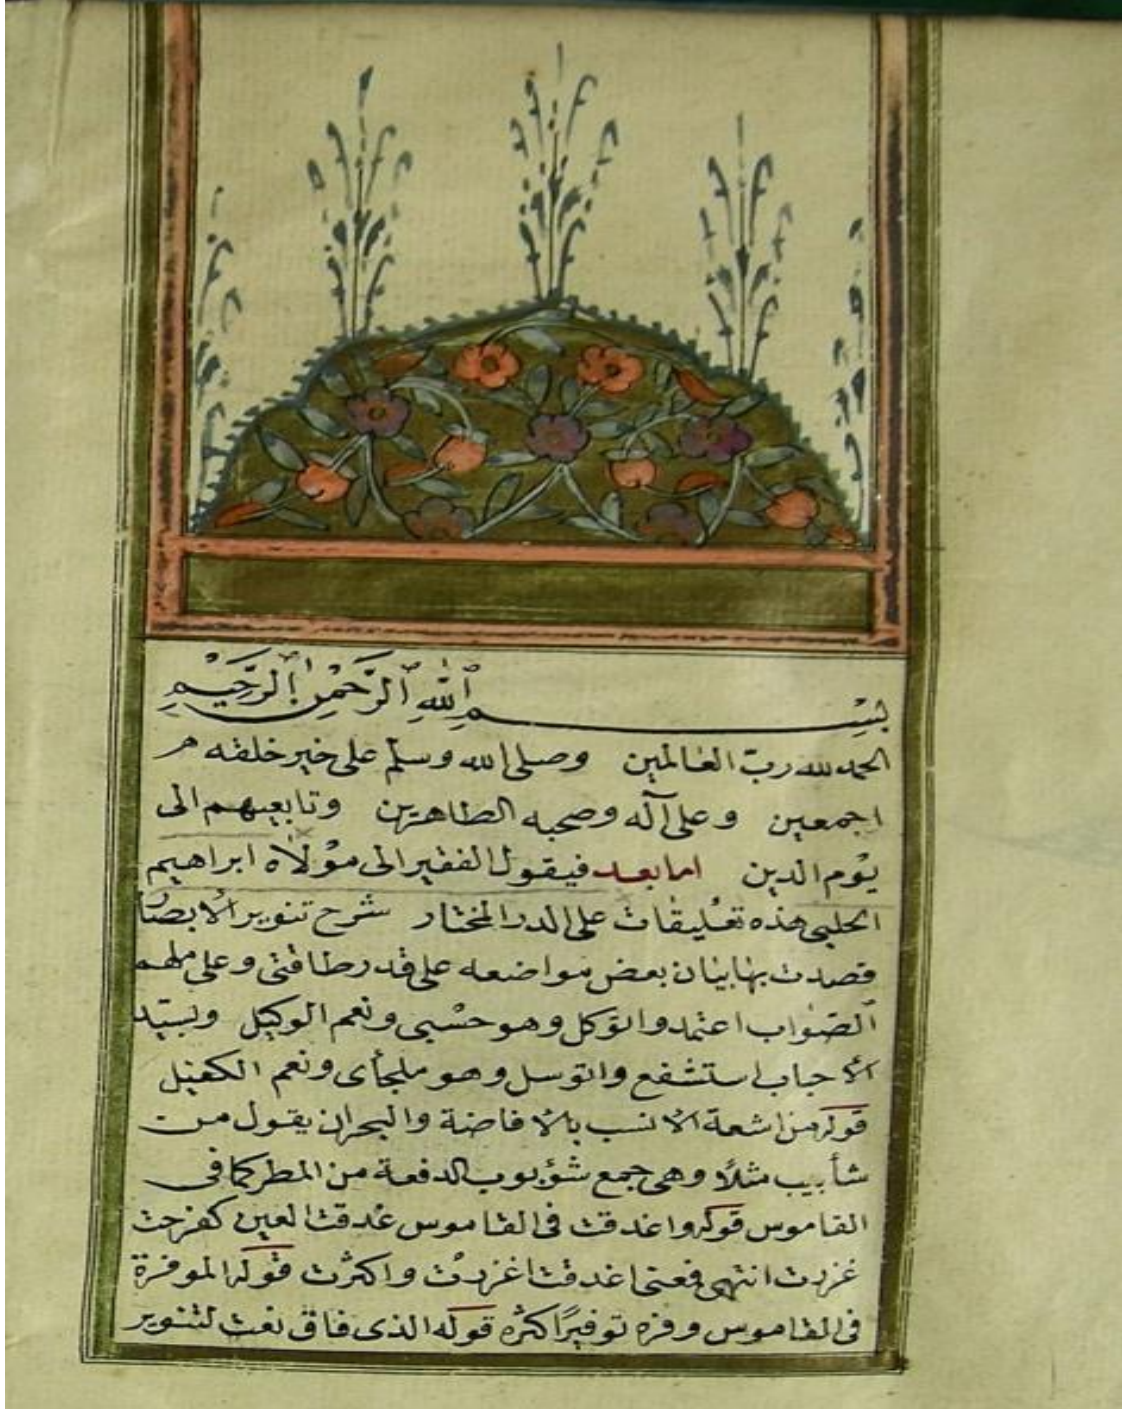 بسم الله الرحمن الرحيم
الحمد لله رب العالمين وصلى الله وسلم على خير خلقه م
اجمعين وعلى آله وصحبه الطاهرين وتابعيهم الى
يوم الدين اما بعد فيقول الفقير الى مولاه ابراهيم
الحلبى هذه تعليقات على الدر المختار شرح تنوير الابصا
قصدت بها بيان بعض مواضعه على قدر طاقتى وعلى ملهم
الصواب اعتمد واتوكل وهو حسبى ونعم الوكيل وبسيد
الاحباب استشفع واتوسل وهو ملجأى ونعم الكفيل
قوله من اشعة الانسب بالافاضة والبحران يقول من
شأبيب مثلا وهى جمع شؤبوب الدفعة من المطر كما فى
القاموس قوله واغدقت فى القاموس غدقت العين كفرحت
غزرت انتهى فمعنى اغدقت اغزرت واكثرت قوله الموفرة
فى القاموس وفره توفيرًا كثره قوله الذى فاق نعت لتنوير